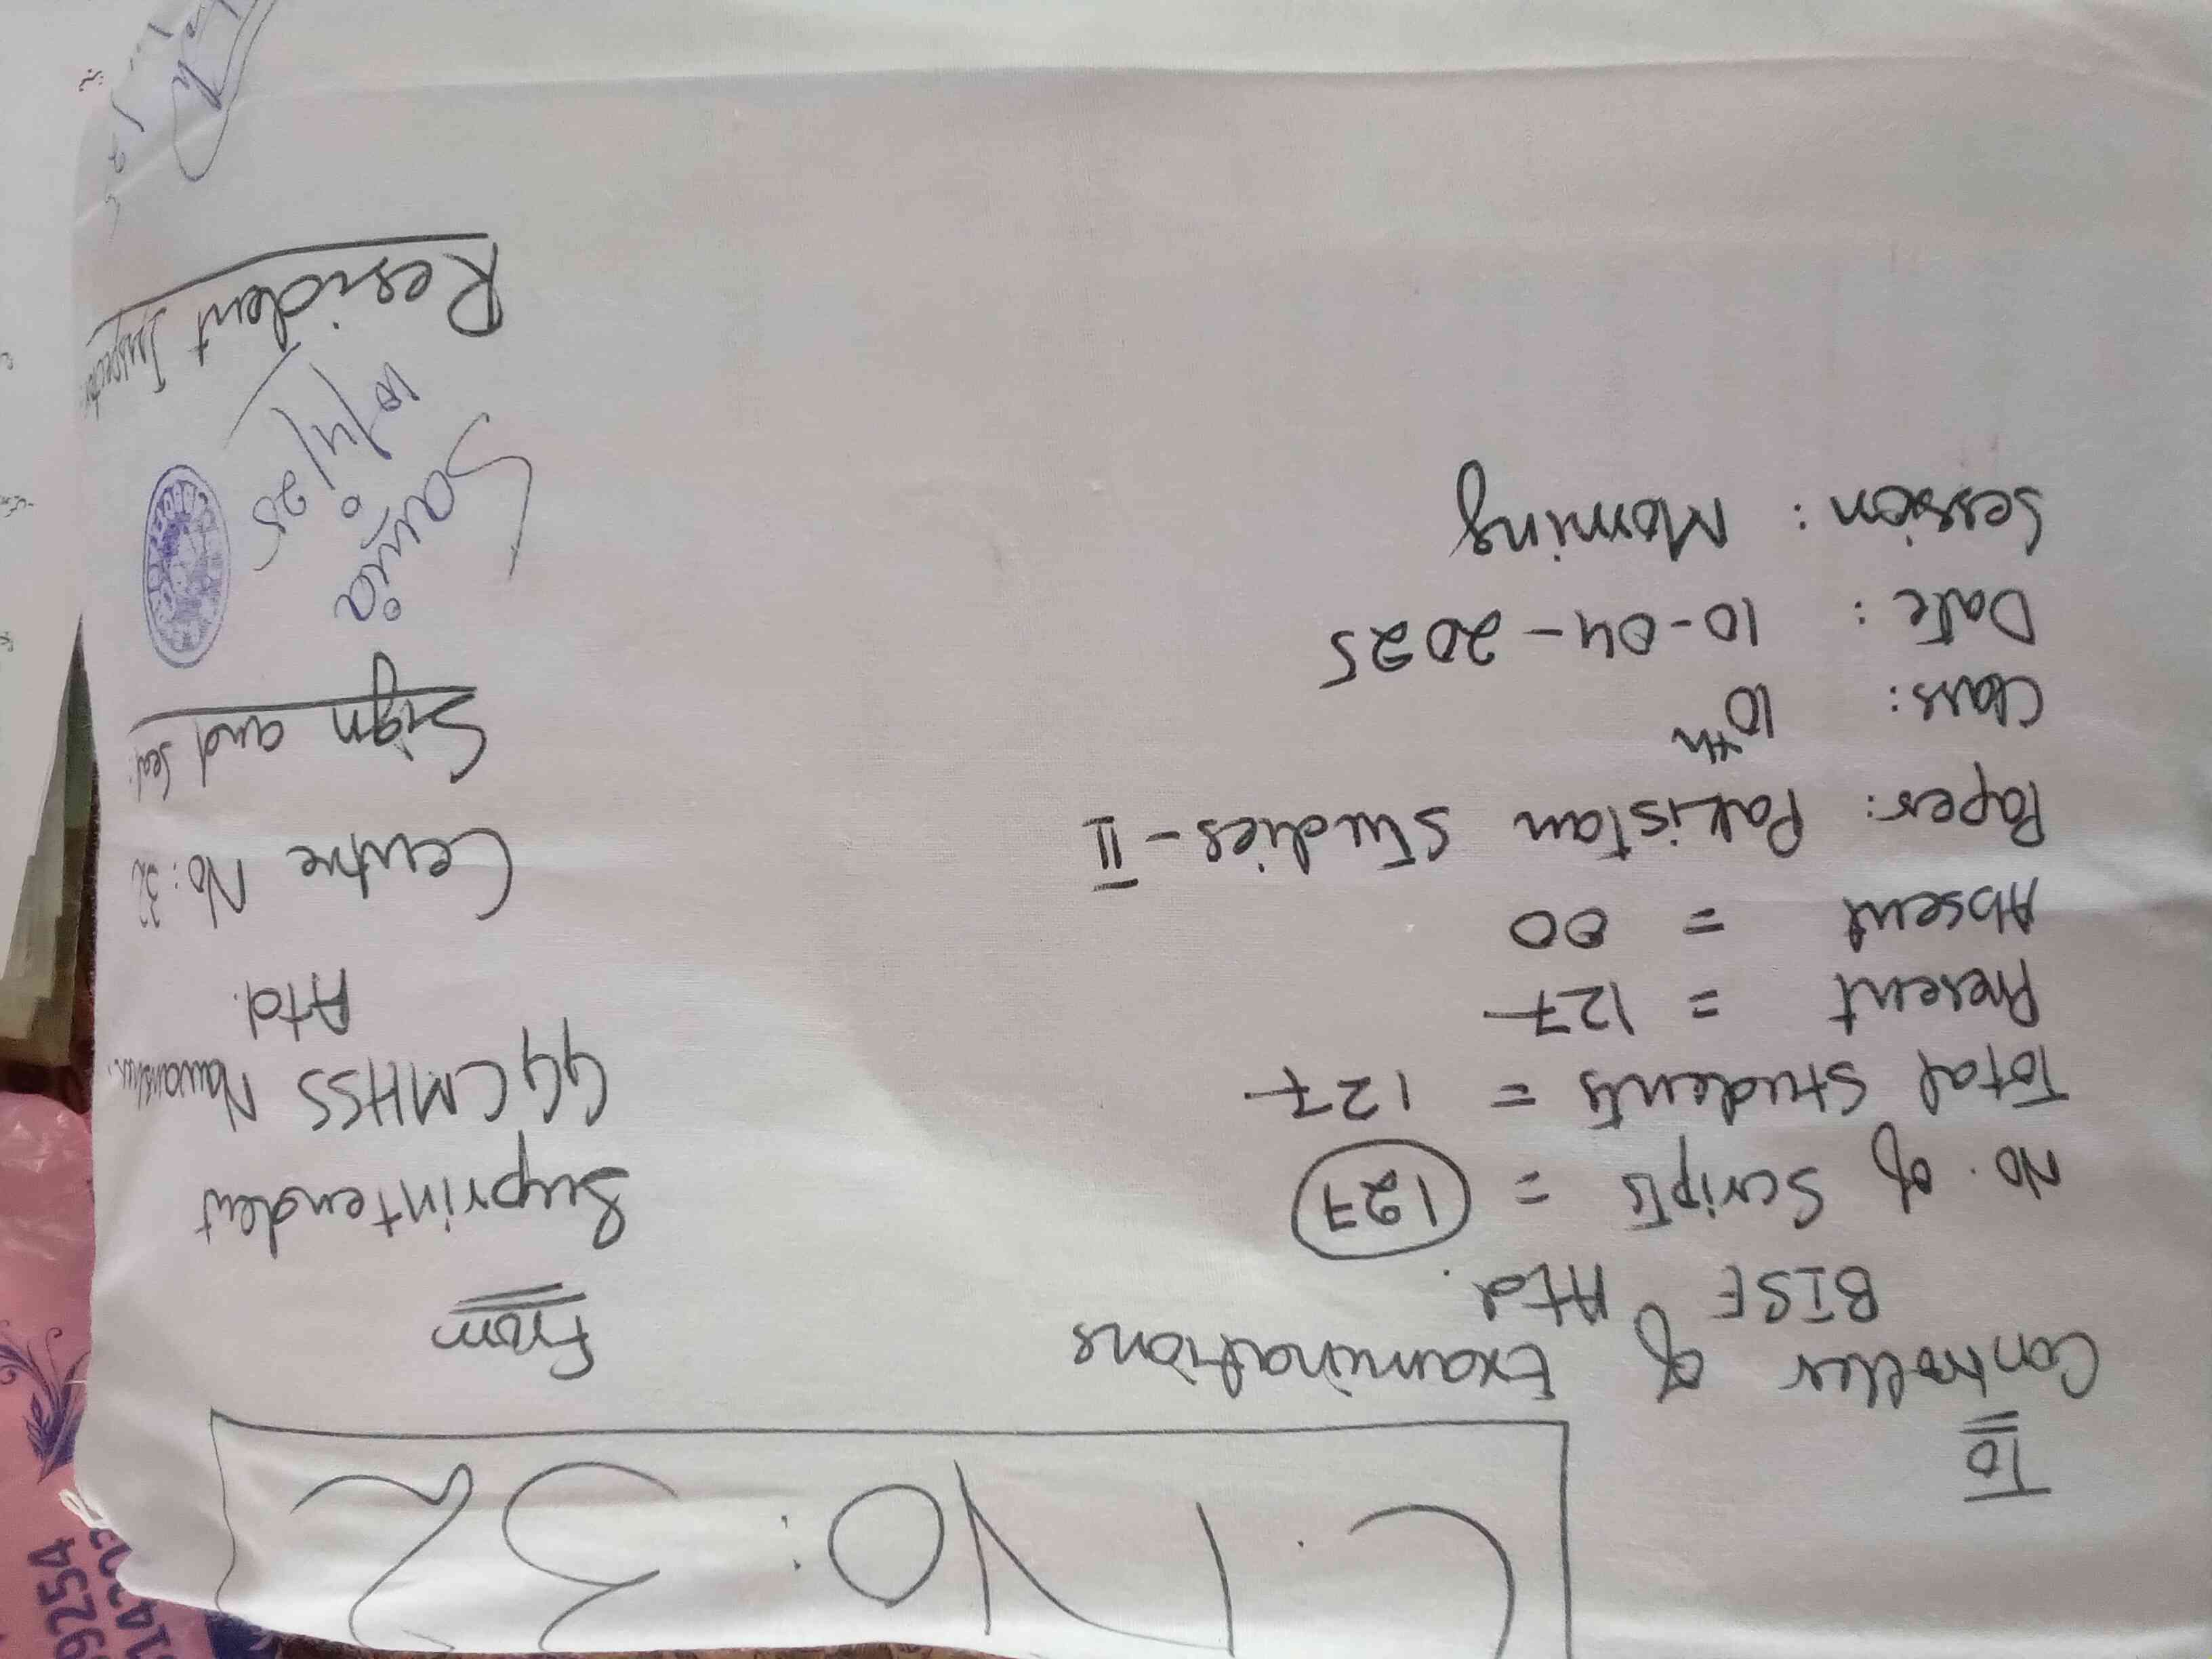 C.NO: 32
To
Controller of Examinations
BISE Atd.
No. of Scripts = 127
Total Students = 127
Present = 127
Absent = 00
Paper: Pakistan Studies-II
Class: 10th
Date: 10-04-2025
Session: Morning
From
Suprintendent
GGCMHSS
Atd.
Centre No: 32
Sign and
10/4/25
Resident
9254